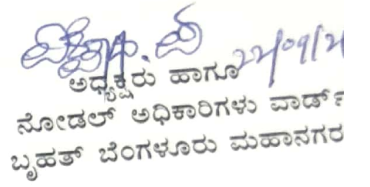 ಅಧ್ಯಕ್ಷರು ಹಾಗೂ
ನೋಡಲ್ ಅಧಿಕಾರಿಗಳು ವಾರ್ಡ್
ಬೃಹತ್ ಬೆಂಗಳೂರು ಮಹಾನಗರ